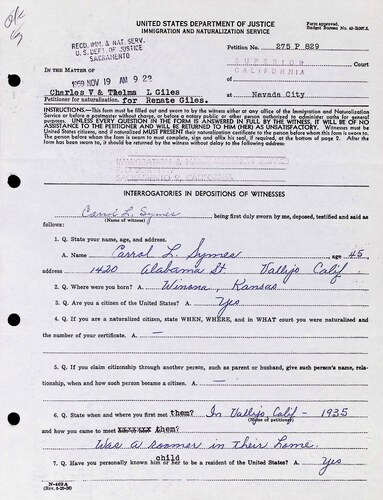 ok
UNITED STATES DEPARTMENT OF JUSTICE
IMMIGRATION AND NATURALIZATION SERVICE
Form approved.
RECD. IMM. & NAT. SERV.
U. S. DEPT. OF JUSTICE
SACRAMENTO
Petition No. 275 P 829
1959 NOV 19 AM 9 23
IN THE MATTER OF
SUPERIOR Court
of CALIFORNIA
Charles V & Thelma L Giles
at Nevada City
Petitioner for naturalization. for Renate Giles.
INSTRUCTIONS.—This form must be filled out and sworn to by the witness either at any office of the Immigration and Naturalization
Service or before a postmaster without charge, or before a notary public or other person authorized to administer oaths for general
purposes. UNLESS EVERY QUESTION IN THE FORM IS ANSWERED IN FULL BY THE WITNESS, IT WILL BE OF NO
ASSISTANCE TO THE PETITIONER AND WILL BE RETURNED TO HIM (HER) AS UNSATISFACTORY. Witnesses must be
United States citizens, and if naturalized MUST PRESENT their naturalization certificate to the person before whom this form is sworn to.
The person before whom this form is sworn to must complete, sign and affix his seal, if required, at the bottom of page 2. After the
form has been sworn to, it should be returned by the witness without delay to the following address:
INTERROGATORIES IN DEPOSITIONS OF WITNESSES
Carrol L. Symes being first duly sworn by me, deposed, testified and said as
(Name of witness)
follows:
1. Q. State your name, age, and address.
A. Name Carrol L. Symes age 45,
address 1420 Alabama St. Vallejo Calif.
2. Q. Where were you born? A. Winona, Kansas
3. Q. Are you a citizen of the United States? A. Yes
4. Q. If you are a naturalized citizen, state WHEN, WHERE, and IN WHAT court you were naturalized and
the number of your certificate. A. —
5. Q. If you claim citizenship through another person, such as parent or husband, give such person's name, relationship,
when and how such person became a citizen. A. —
6. Q. State when and where you first met them? In Vallejo, Calif - 1935
(Name of petitioner)
and how you came to meet them?
Was a roomer in their home.
child
7. Q. Have you personally known him or her to be a resident of the United States? A. Yes
N-462A